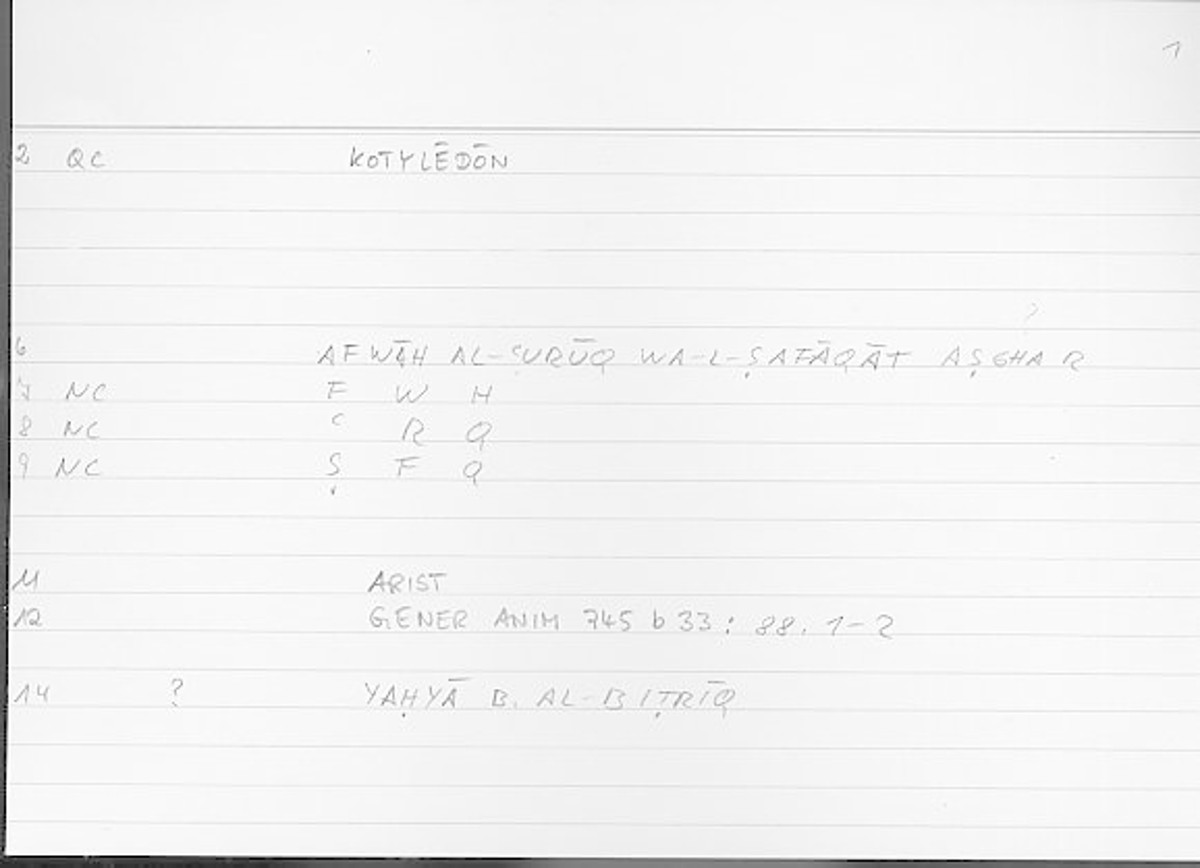 1
2 QC KOTYLĒDŌN
?
6 AFWĀH AL-ʿURŪQ WA-L-ṢAFĀQĀT AṢGHAR
7 NC F W H
8 NC ʿ R Q
9 NC Ṣ F Q
11 ARIST
12 GENER ANIM 745 b 33 : 88. 1-2
14 ? YAḤYĀ B. AL-BIṬRĪQ